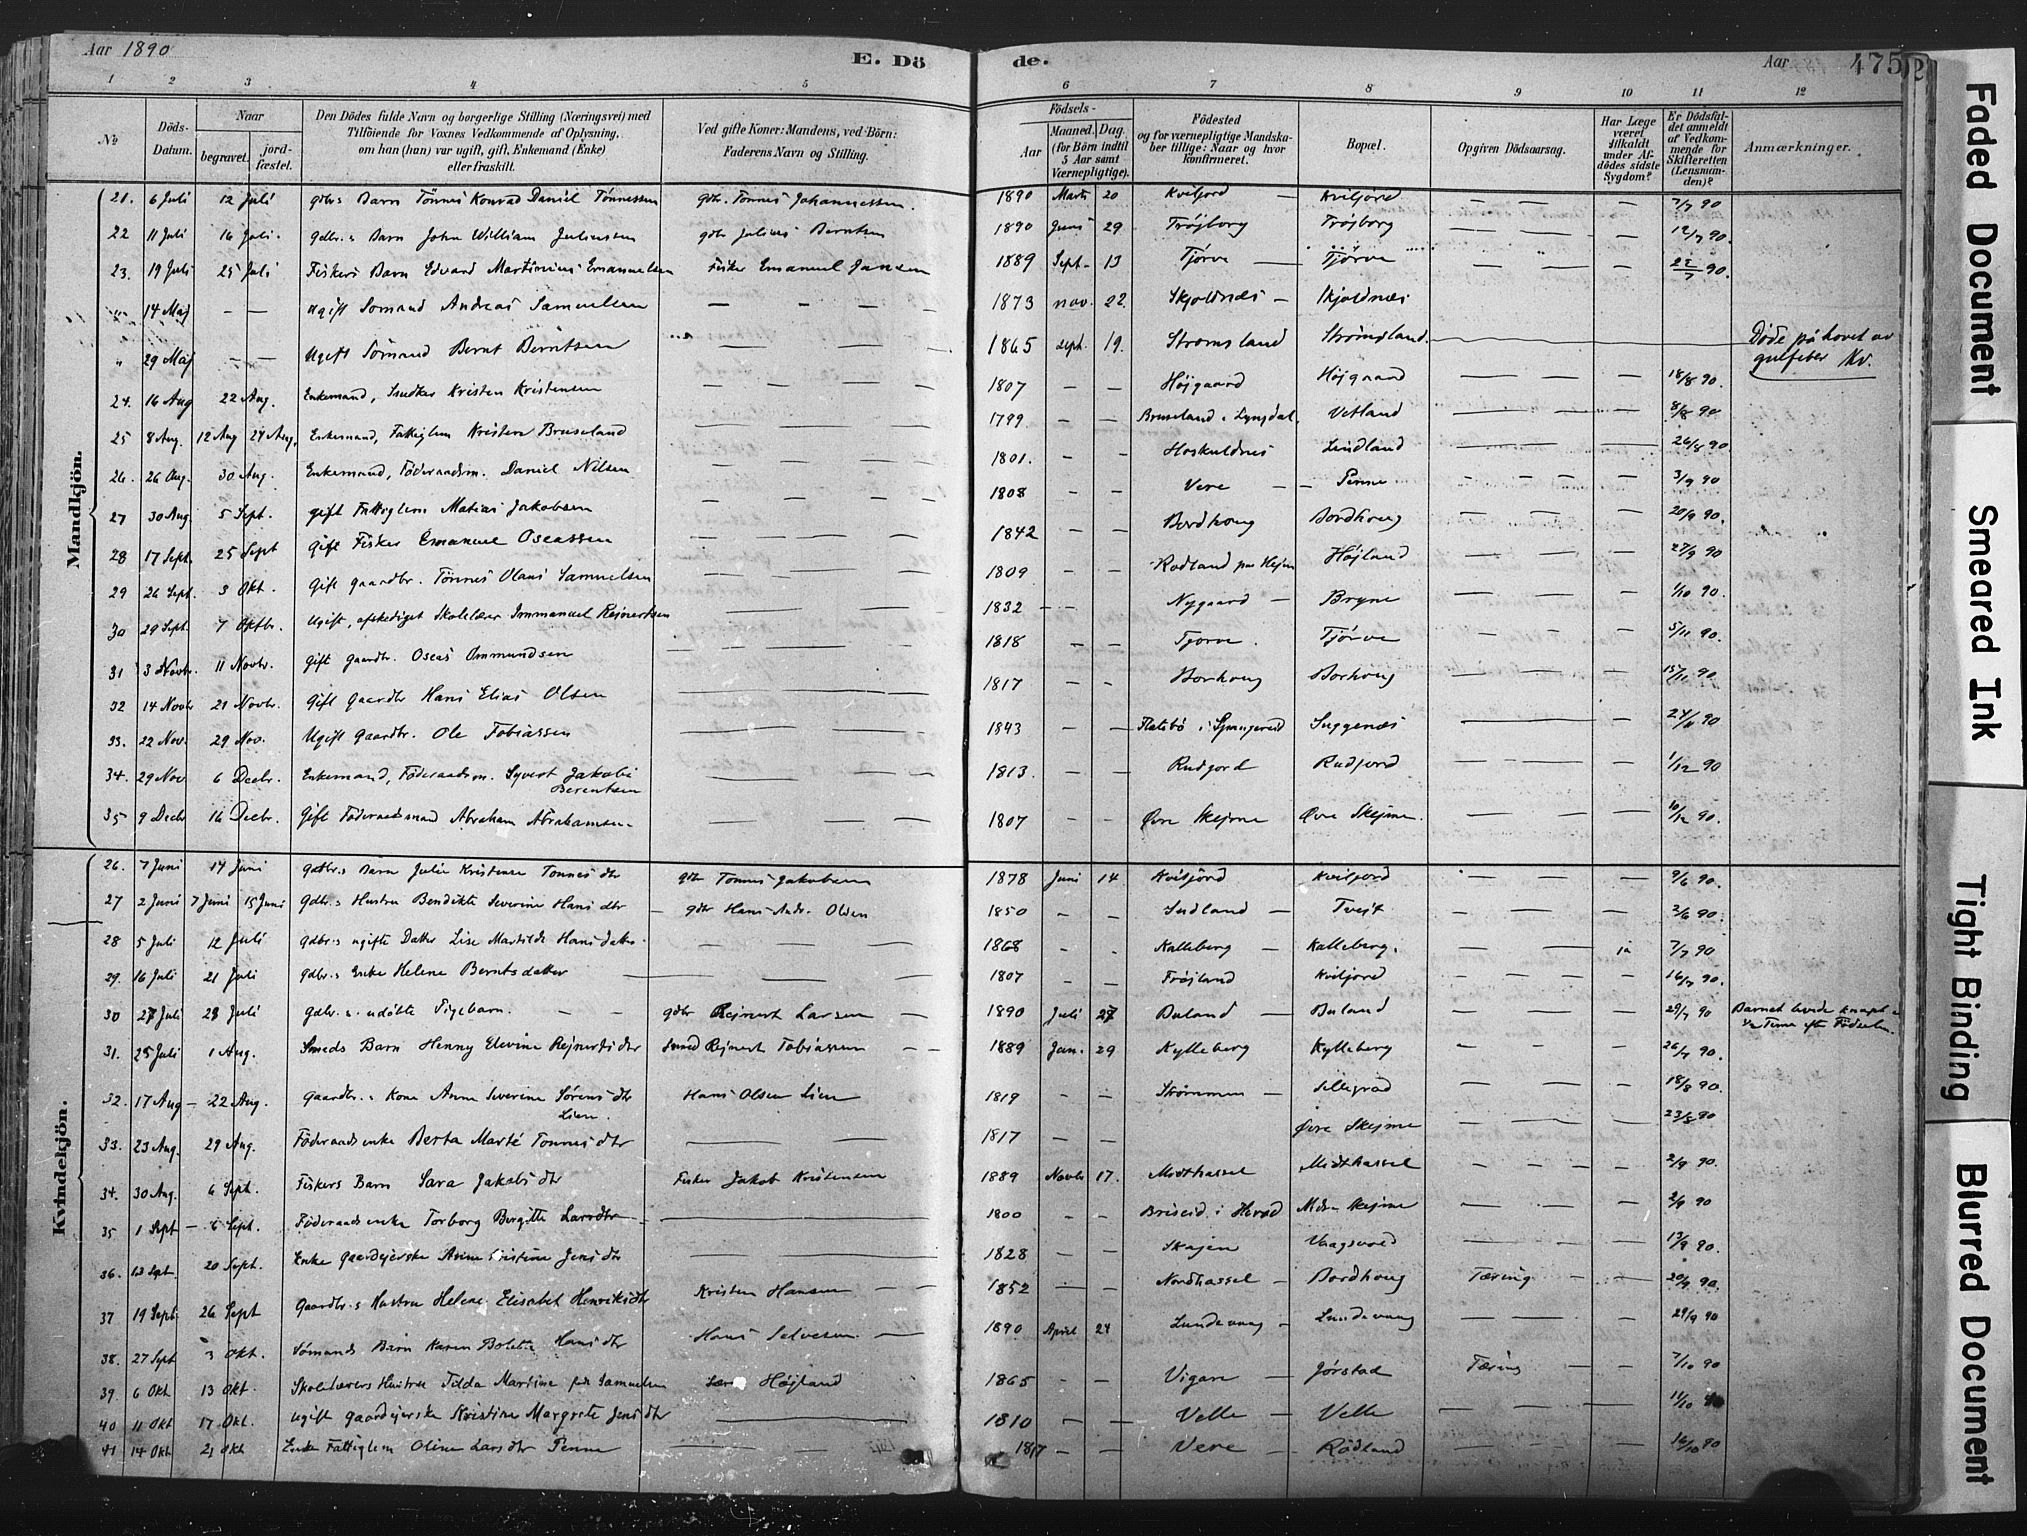 Aar 1890
E. Döde.
Aar
475
1 2 3 4 5 6 7 8 9 10 11 12
No
Döds-Datum.
Naar
begravet.
jord-fæstet.
Den Dödes fulde Navn og borgerlige Stilling (Næringsvei) med
Tilföiende for Voxnes Vedkommende af Oplysning,
om han (hun) var ugift, gift, Enkemand (Enke)
eller fraskilt.
Ved gifte Koner: Mandens, ved Börn:
Faderens Navn og Stilling.
Födsels-
Aar
Maaned. Dag.
(for Börn indtil
5 Aar samt
Værnepligtige).
Födested
og for værnepligtige Mandska-
ber tillige: Naar og hvor
konfirmeret.
Bopæl.
Opgiven Dödsaarsag.
Har Læge
været
tilkaldt
under Af-
dödes sidste
Sygdom?
Er Dödsfal-
det anmeldt
af Vedkom-
mende for
Skifteretten
(Lensman-
den)?
Anmærkninger.
Mandkjön.
21. 6 Juli 12 Juli gdbrs Barn Tönnes Konrad Daniel Tönnessen gdbr. Tönnes Johannessen. 1890 Marts 20 Kviljord — Kviljord — — — 7/7 90
22 11 Juli 16 Juli. gdbr.s Barn John William Juliussen gdbr Julius Berntsen 1890 Juni 29 Tröjborg — Tröjborg — — — 12/7 90.
23. 19 Juli 25 Juli Fiskers Barn Edvard Martinius Emanuelsen Fisker Emanuel Jansen 1889 Sept. 13 Tjörve — Tjörve — — — 22/7 90.
" 14 Maj — — Ugift Sömand Andreas Samuelsen — — — 1873 nov. 22. Skjoldnæs — Skjoldnæs
" 29 Maj — — Ugift Sömand Bernt Berntsen — — — 1865 sept. 19. Strömsland Strömsland. Döde på havet av gulfeber Kv.
24. 16 Aug 22 Aug. Enkemand, Snedker Kristen Kristensen — — — 1807 — — Höjgaard Höjgaard — — — 18/8 90.
25 8 Aug. 12 Aug 24 Aug. Enkemand, Fattiglem Kristen Bruseland — — — 1799 — — Bruseland i Lyngdal. Vetland — — — 8/8 90
26. 26 Aug. 30 Aug. Enkemand, Föderaadsm. Daniel Nilsen — — — 1801. — — Hoskuldnes Lindland — — — 26/8 90
27 30 Aug. 5 Sept. gift Fattiglem Matias Jakobsen — — — 1808 — — Vere — — Penne — — — 3/9 90
28 17 Sept. 25 Sept Gift Fisker Emanuel Oseassen — — — 1842 — — Bordhoug Bordhoug — — — 20/9 90.
29 26 Sept. 3 Okt. Gift gaardbr. Tönnes Olaus Samuelsen — — — 1809 — — Rödland Höjland — — — 27/9 90
30 29 Sept. 7 Oktbr. Ugift, afskediget Skolelærer Immanuel Rejnertsen — — — 1832 — — Nygaard — Bryne — — — 1/10 90.
31 3 Novbr. 11 Novbr. Gift gaardbr. Oseas Ommundsen — — — 1818 — — Tjörve. Tjörve — — — 5/11 90.
32 14 Novbr 21 Novbr. Gift gaardbr Hans Elias Olsen — — — 1817 — — Borhoug Borhoug — — — 15/11 90
33. 22 Nov. 29 Nov. Ugift Gaardbr. Ole Tobiassen — — — 1843 — — Flatebö i Spangereid Suggenæs — — — 24/11 90
34. 29 Nov 6 Decbr. Enkemand, Föderaadsm. Syvert Jakobi Berentsen — — — 1813. — — Rudjord Rudjord — — — 1/12 90
35 9 Decbr 16 Decbr. Gift Föderaadsmand Abraham Abrahamsen — — — 1807 — — Övre Skejme Övre Skejme. — — — 10/12 90.
Kvindekjön.
26. 7 Juni 14 Juni Gdbr.s Barn Julie Kristense Tönnesdtr gdbr Tönnes Jakobsen 1878 Juni 14 Kviljord Kviljord — — — 9/6 90.
27 2 Juni 7 Juni 15 Juni Gdbr.s Hustru Bendikte Severine Hansdtr — gdbr Hans Andr. Olsen 1850 — — Indland — Tvejt — — — 2/6 90.
28 5 Juli 12 Juli Gdbr.s ugifte Datter Lise Martilde Hansdatter — — — 1868 — — Kalleberg — Kalleberg. — — ja 7/7 90
29. 16 Juli 21 Juli Gdbr.s Enke Helene Berntsdatter — — — 1807 — — Fröjland Kviljord — — — 16/7 90.
30 27 Juli 28 Juli gdbr.s udöbte Pigebarn. — — gdbr Rejnert Larsen — 1890 Juli 27 Buland — Buland — — — 29/7 90 Barnet levde knapt ½ Time eft Födselen.
31. 25 Juli 1 Aug. Smeds Barn Henny Elevine Rejnertsdtr Smed Rejnert Tobiassen — — 1889 Jan. 29 Kylleberg Kylleberg — — — 26/7 90.
32. 17 Aug — 22 Aug. Gaardbr.s Kone Anne Severine Sörensdtr Lien. Hans Olsen Lien 1819 — — Strömmen — — — — 18/8 90.
33. 23 Aug. 29 Aug. Föderaadsenke Berta Marte Tönnesdtr — — 1817 — — Övre Skejme — — — 23/8 90
34. 30 Aug. 6 Sept. Fiskers Barn Sara Jakobsdtr Fisker Jakob Kristensen 1889 Novbr 17. Midthassel Midthassel — — — 2/9 90.
35 1 Sept — 6 Sept. Föderaadsenke Torborg Bergitte Larsdtr — 1800 — — Briseid i Herad Skejme — — — 2/9 90
36. 13 Sept. 20 Sept. Enke Gaardejerske Anne Kristine Jensdtr — 1828 — — Skajen Vaagsvold — — — 13/9 90.
37 19 Sept. 26 Sept Gaardbr.s Hustru Helene Elisabet Henriksdtr Kristen Hansen — 1852 — — Nordhassel — Bordhoug Tæring — — 20/9 90.
38. 27 Sept 3 Okt. Sömands Barn Karen Bolette Hansdtr Hans Salvesen — 1890 April 24 Lundevaag — Lundevaag 29/9 90
39. 6 Okt 13 Okt. Skolelærers Hustru Tilda Martine Samuelsen Höjland 1865 — — Vigan — Jörstad Tæring — — 7/10 90
40 11 Okt 17 Okt. Ugift Gaardejerske Kristine Margrete Jensdtr — 1810 — — Velle — Velle 11/10 90
41 14 Okt 21 Okt Enke Fattiglem Oline Larsdtr Penne — — 1817 — — Vere — Rödland — — — 16/10 90
Faded Document
Smeared Ink
Tight Binding
Blurred Document